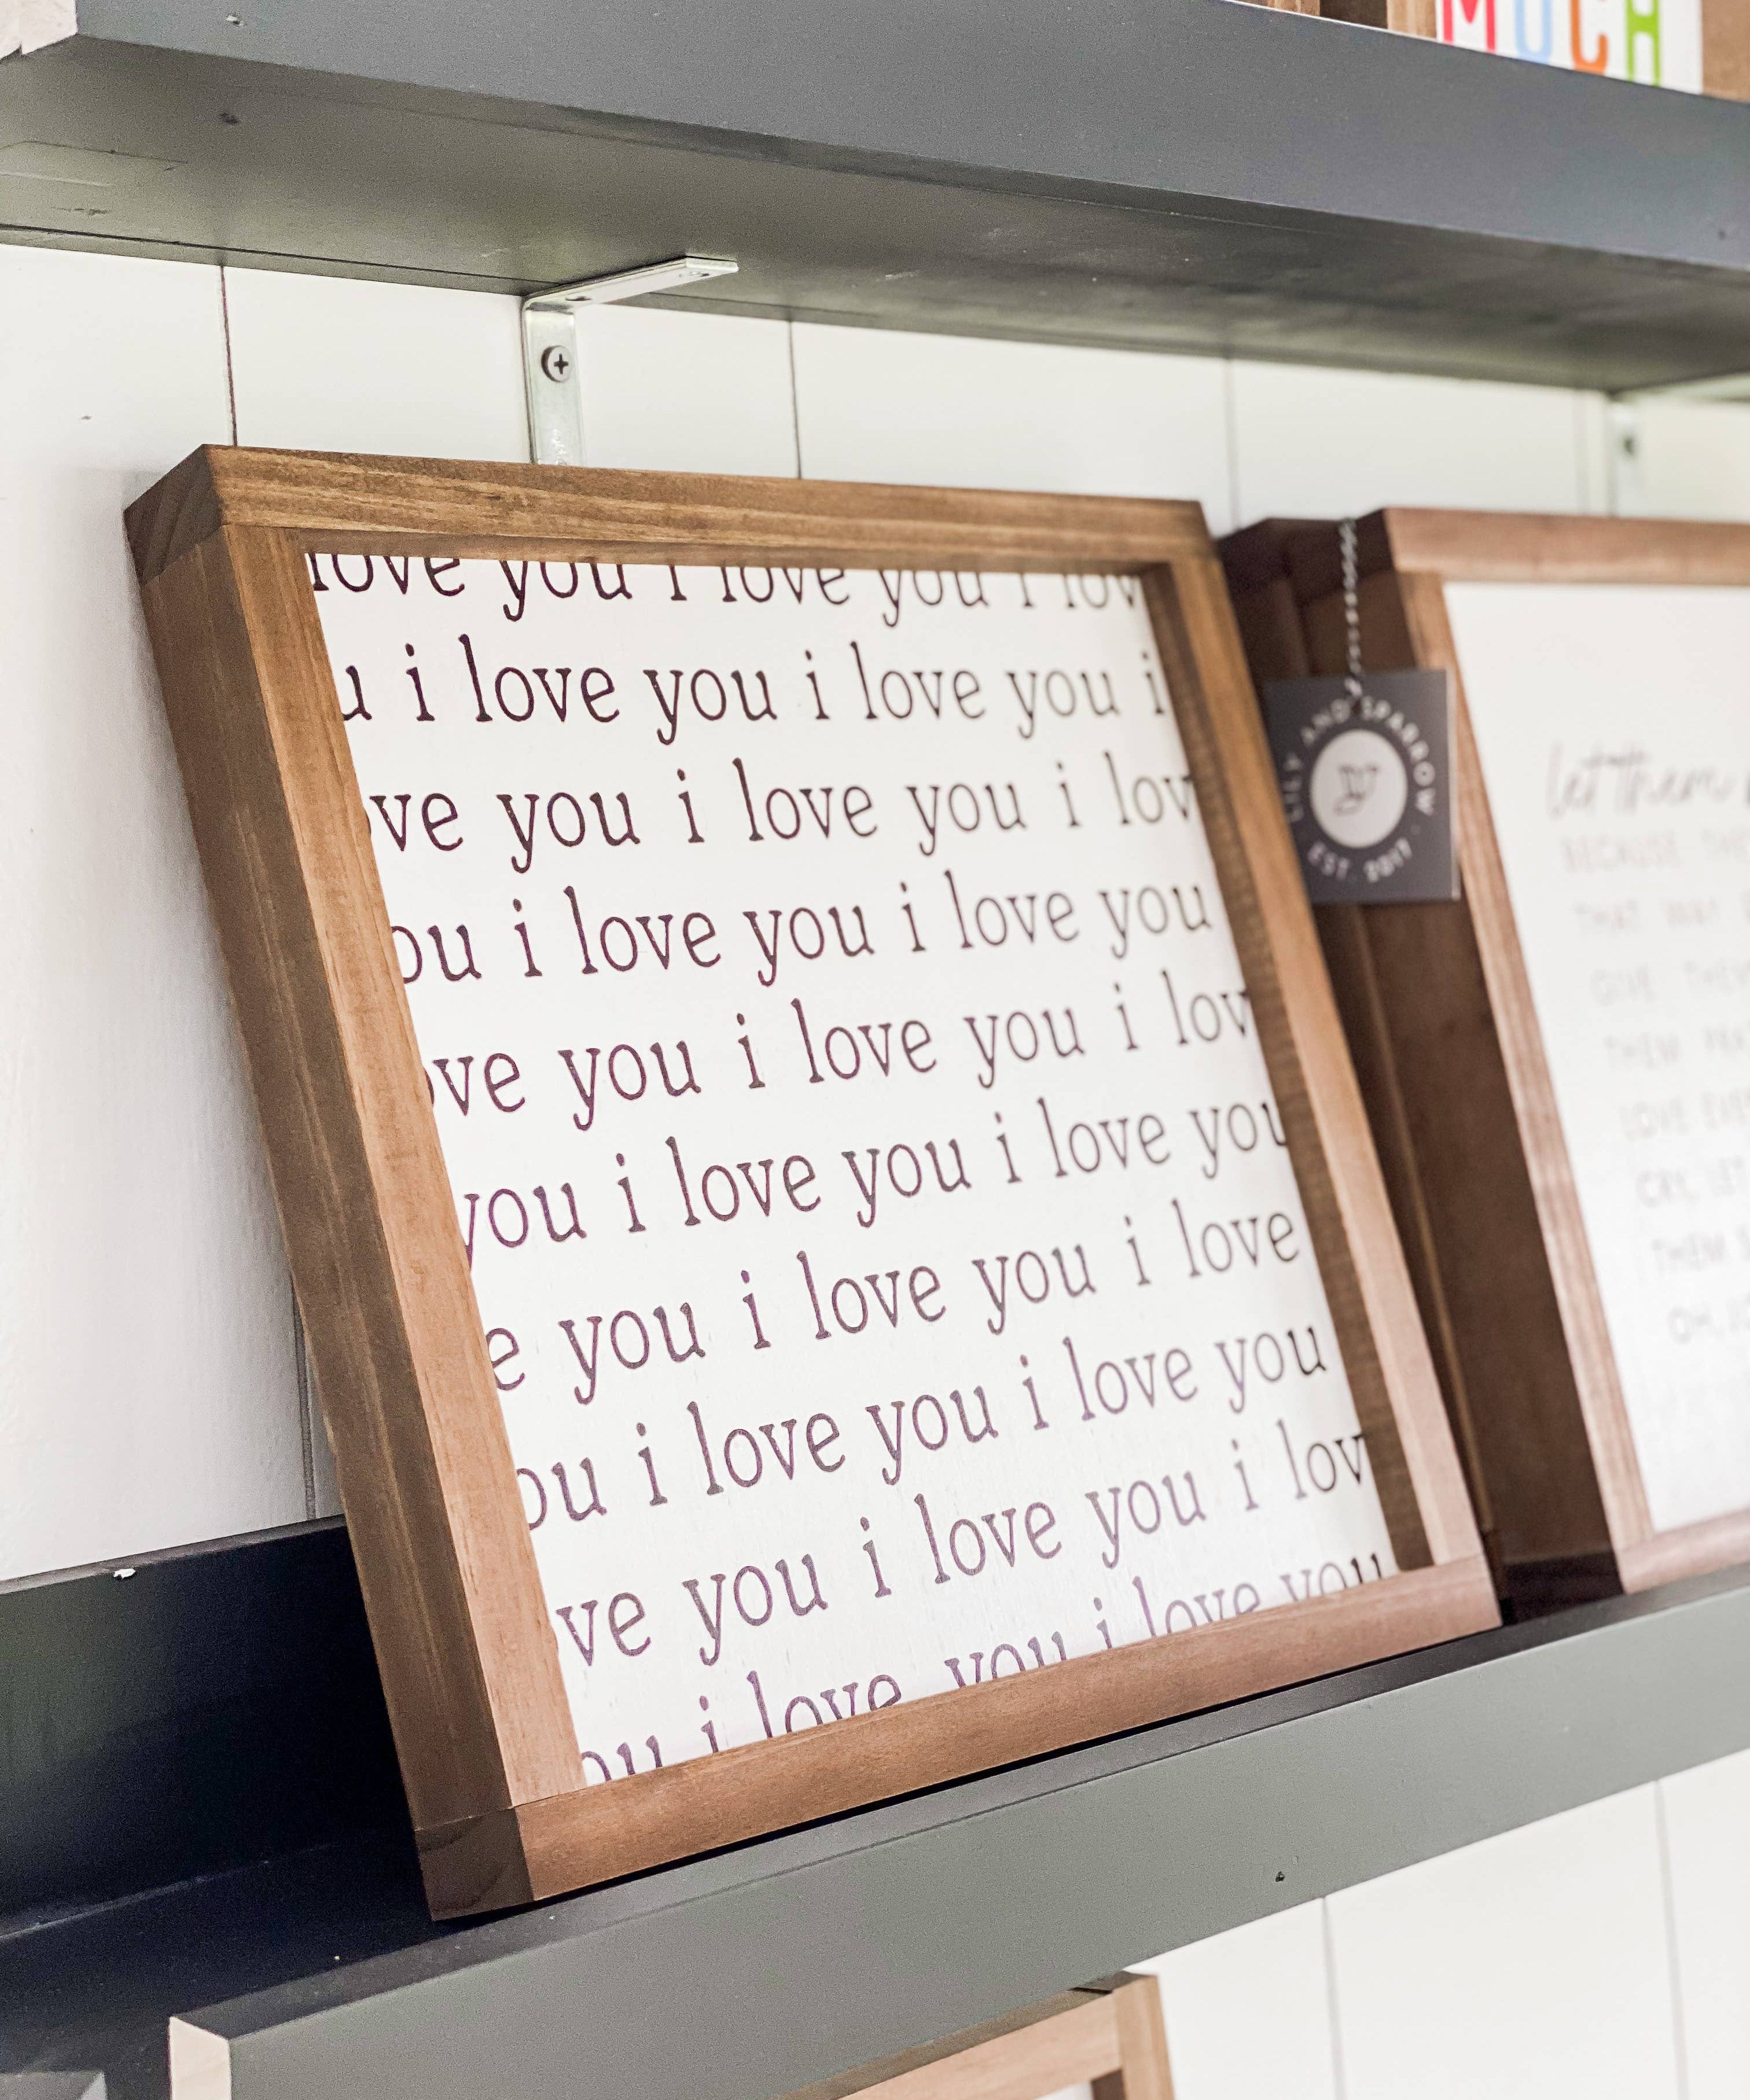 MUCH
love you i love you i lov
u i love you i love you i
ve you i love you i lov
ou i love you i love you
ove you i love you i lov
you i love you i love you
e you i love you i love
ou i love you i love you
ve you i love you i lov
ou i love you i love you
LILY AND SPARROW
EST. 2017
let them
BECAUSE THE
THAT WAY
GIVE THEM
THEM
LOVE
CRY, LET
THEM
OH,